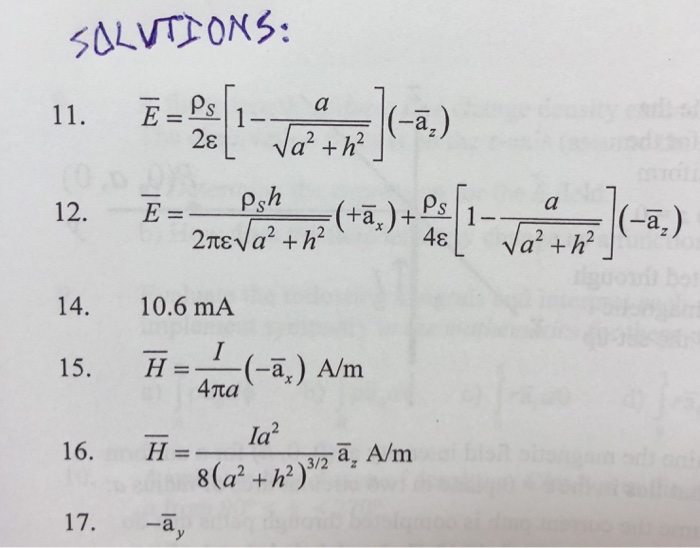 SOLUTIONS:
11. E̅ = ρ_S/2ε [1 − a/√(a² + h²)] (−a̅_z)
12. E̅ = ρ_S h/2πε√(a² + h²) (+a̅_x) + ρ_S/4ε [1 − a/√(a² + h²)] (−a̅_z)
14. 10.6 mA
15. H̅ = I/4πa (−a̅_x) A/m
16. H̅ = Ia²/8(a² + h²)^{3/2} a̅_z A/m
17. −a̅_y